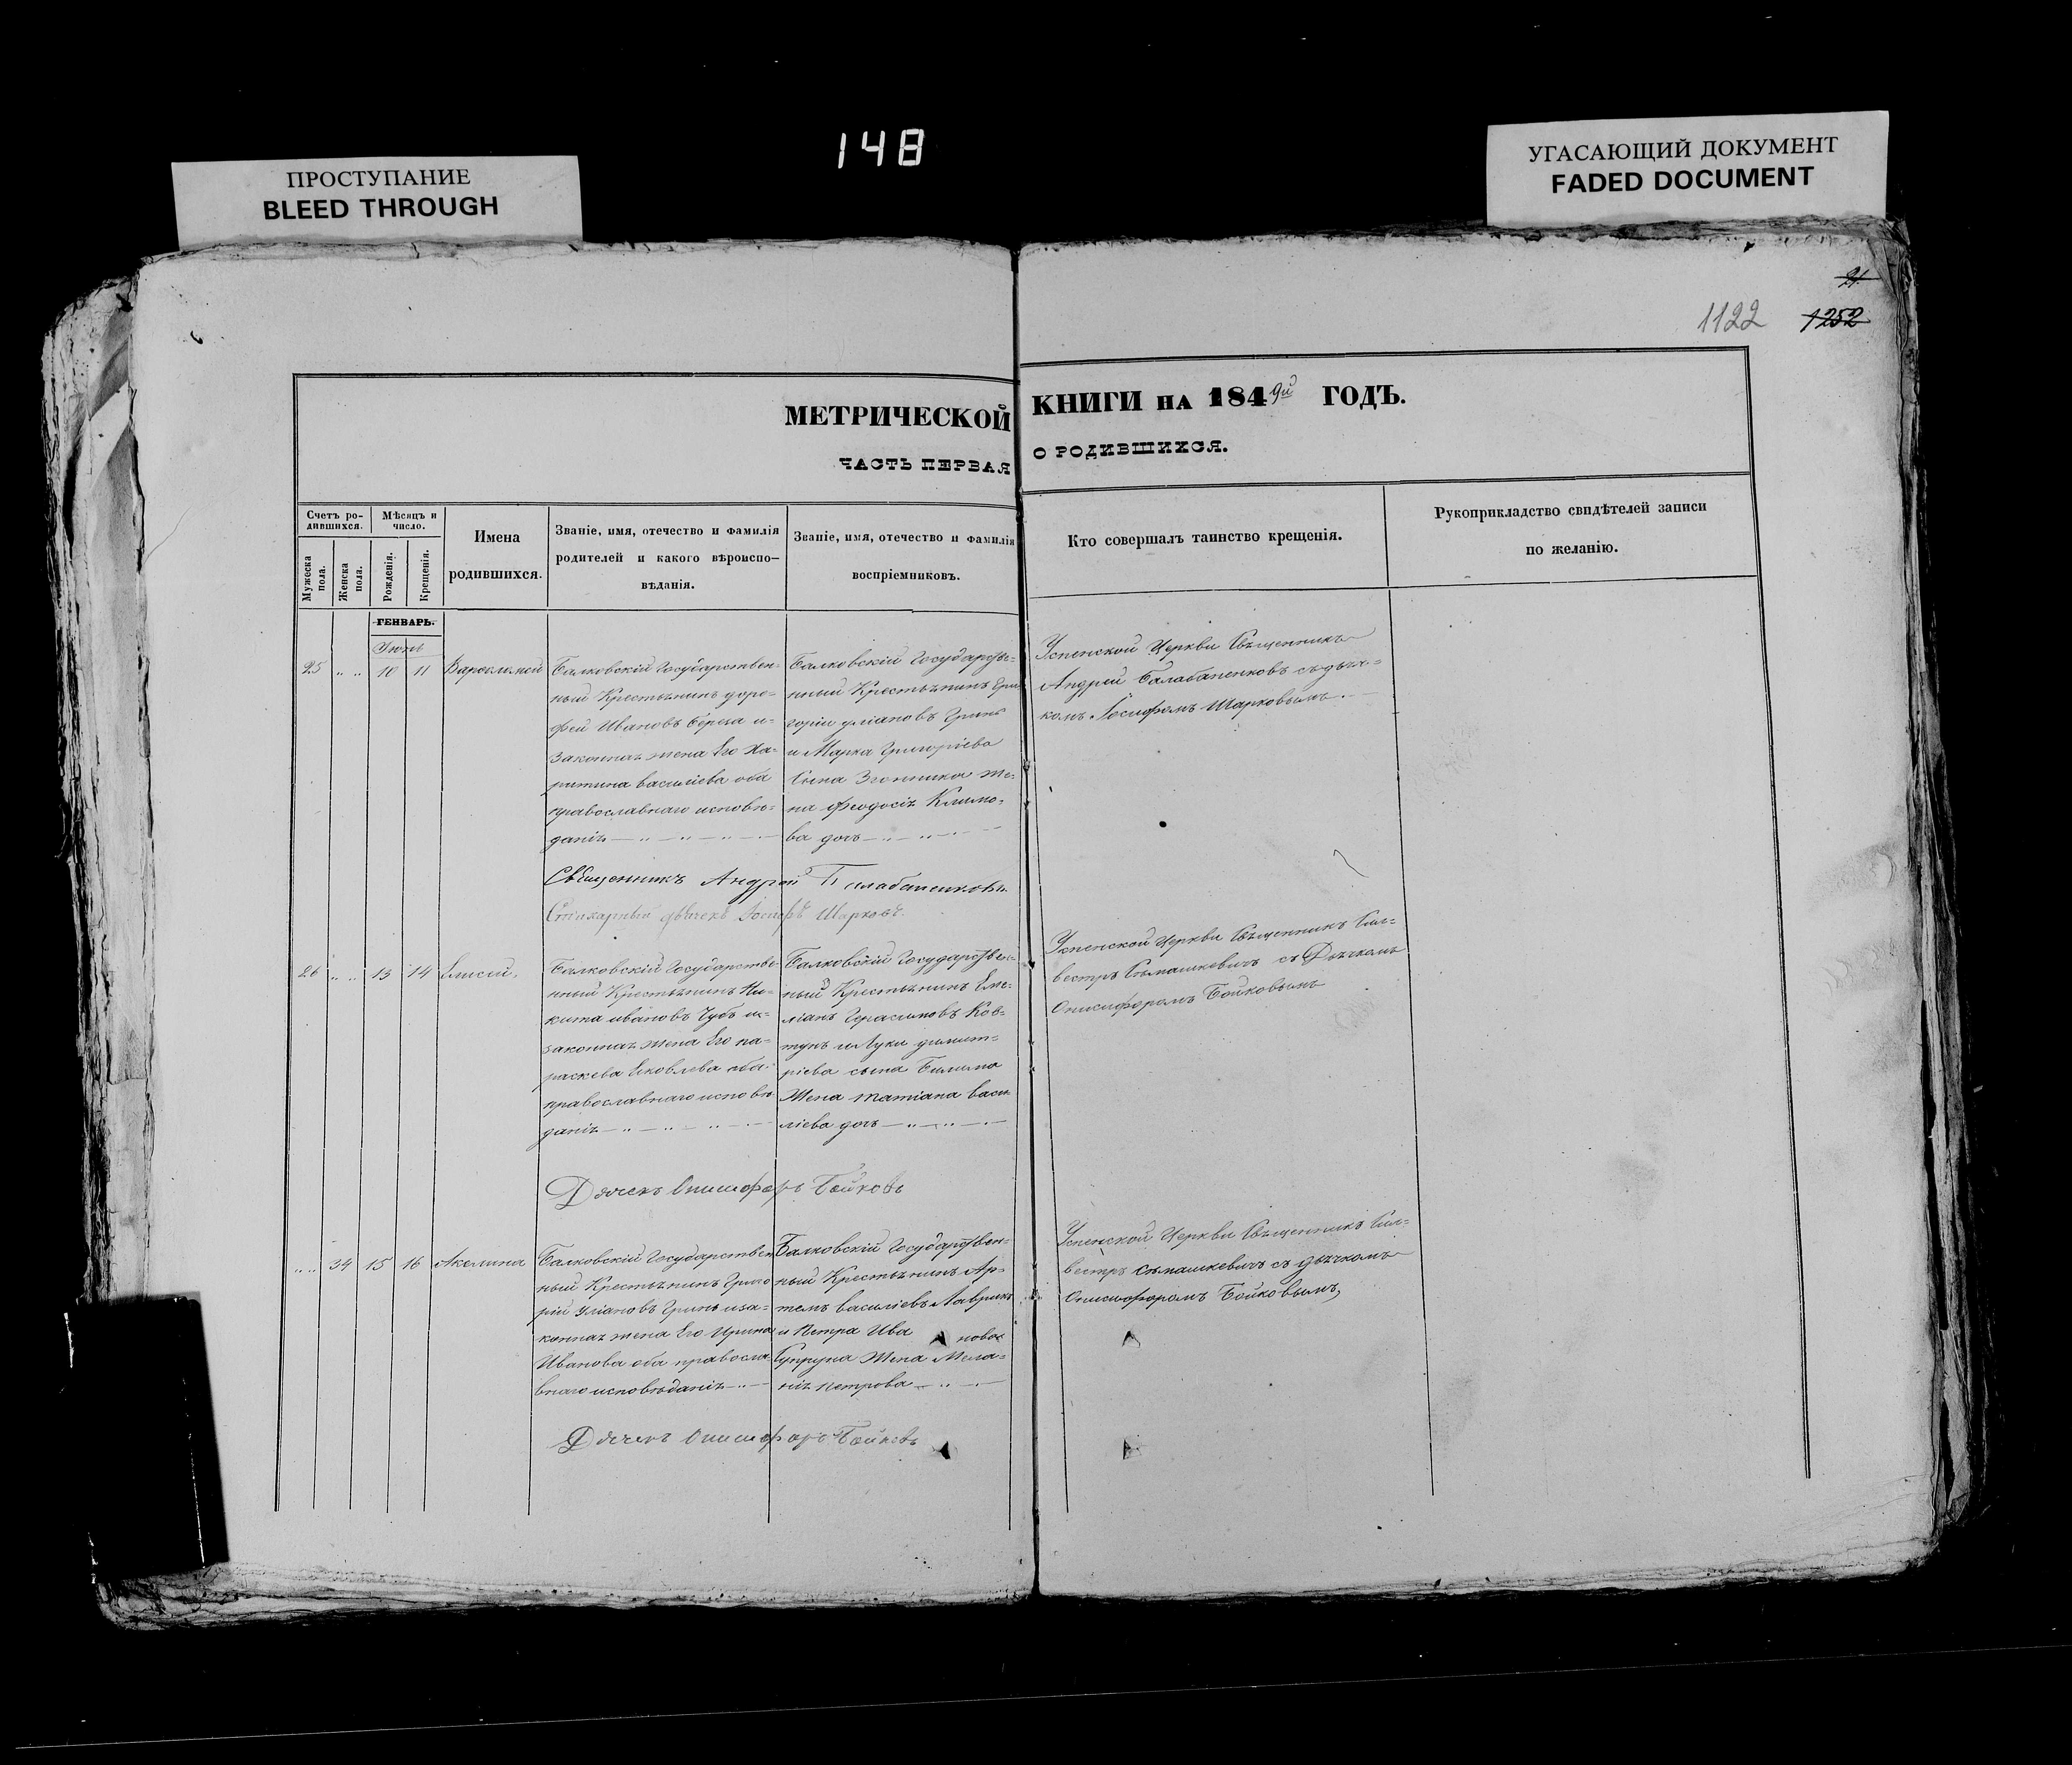 148
ПРОСТУПАНИЕ
BLEED THROUGH
УГАСАЮЩИЙ ДОКУМЕНТ
FADED DOCUMENT
21.
1122 1252
МЕТРИЧЕСКОЙ КНИГИ НА 1849й ГОДЪ.
ЧАСТЬ ПЕРВАЯ О РОДИВШИХСЯ.
Счетъ ро-
дившихся.
Мужеска пола.
Женска пола.
Мѣсяцъ и
число.
Рожденія.
Крещенія.
Имена
родившихся.
Званіе, имя, отечество и фамилія
родителей и какого вѣроиспо-
вѣданія.
Званіе, имя, отечество и фамилія
воспріемниковъ.
Кто совершалъ таинство крещенія.
Рукоприкладство свидѣтелей записи
по желанію.
ГЕНВАРЬ.
Іюнь
25 10 11 Варѳоломей
Балковскій Государствен-
ный Крестьянинъ доро-
фей Ивановъ береза и-
законная жена Его Ха-
ритина василіева оба
православнаго исповѣ-
данія
Балковскій Государстве-
нный Крестьянинъ Гри
горій уліановъ Гринь
и Марка Григоріева
Сына жe-
на феодосія Климо-
ва дочь
Успенской Церкви Священникъ
Андрей Балабаненковъ съ дьяч-
комъ Іосифомъ Шарковымъ.
Священникъ Андрей Балабаненковъ
Стихарный дьячекъ Іосифъ Шарковъ.
26 13 14 Елисей,
Балковскій Государстве-
нный Крестьянинъ Ни-
кита ивановъ Чубъ и-
законная жена Его па-
раскева Яковлева оба
православнаго исповѣ
данія
Балковскій Государствен-
ный Крестьянинъ Еме-
ліанъ Герасимовъ Ков-
тунъ и Луки димит-
ріева сына Билима
Жена татіана васи
ліева дочь
Успенской Церкви Священникъ Сил-
вестръ Сѣмашкевичъ съ Дьячкомъ
Онисифоромъ Бойковымъ
Дячекъ Онисифоръ Бойковъ
34 15 16 Акелина
Балковскій Государствен
ный Крестьянинъ Григо
рій уліановъ Гринь иза-
конная жена Его Ирина
Иванова оба правосла
внаго исповѣданія
Балковскій Государствен-
ный Крестьянинъ Ар-
темъ василіевъ Лаврикъ
и Петра Ива нова
Супруна Жена Мела-
нія петрова
Успенской Церкви Священникъ Сил-
вестръ Сѣмашкевичъ съ дьячкомъ
Онисифоромъ Бойковымъ,
Дячекъ Онисифоръ Бойковъ